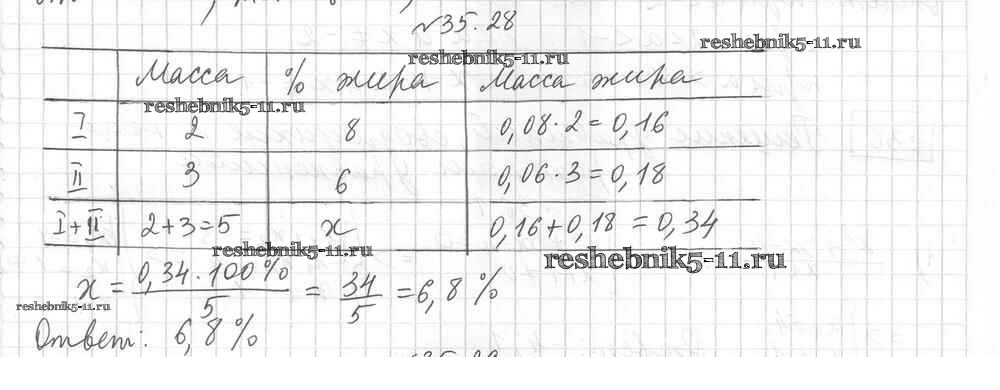 №35.28
reshebnik5-11.ru
reshebnik5-11.ru
Масса % жира Масса жира
reshebnik5-11.ru
I 2 8 0,08·2=0,16
II 3 6 0,06·3=0,18
I+II 2+3=5 x 0,16+0,18=0,34
reshebnik5-11.ru
reshebnik5-11.ru
x = 0,34·100%/5 = 34/5 = 6,8%
reshebnik5-11.ru
Ответ: 6,8%